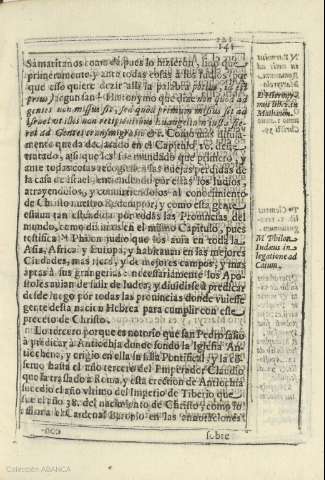 141
Samaritanos como despues lo hizieron, sino que
primeramente y ante todas cosas à los Iudios, por
que esso quiere dezir alli la palabra potius, id est
prius) segun san L Hieronymo que dize non quod ad
gentes non missus sit, sed quod primum missus sit ad
Israel vt illis non recipientibus Euangelium iusta fie-
ret ad Gentes transmigratio &c. Como mas difusa-
mente queda declarado en el Capitulo 10. deste
tratado, assi que les fue mandado que primero, y
ante todas cosas recogiessen las ouejas perdidas de
la casa de Israel, entendiendo por estas los Iudios
atrayendolos, y conuirtiendolos al conocimiento
de Christo nuestro Redemptor, y como esta gente
estaua tan estendida por todas las Prouincias del
mundo, como diximos en el mismo Capitulo, pues
testifica M Philon judio que los auia en toda la
Asia, Africa y Europa, y habitauan en las mejores
Ciudades, mas ricas, y de mejores campos, y mas
aptas à sus grangerias: necessariamente los Apos-
toles auian de salir de Iudea, y diuidirse à predicar
desde luego por todas las prouincias donde vuiesse
gente desta nacion Hebrea para cumplir con este
precepto de Christo.
Lo tercero porque es notorio que san Pedro salio
à predicar à Antiochia donde fundo la Iglesia An-
tiochena, y erigio en ella su silla Pontifical, y la co-
seruo hasta el año tercero del Emperador Claudio
que la traslado a Roma, y esta erection de Antiochia
sucedio el año vltimo del Imperio de Tiberio que
fue el año 38. del nacimiento de Christo y como lo
el Cardenal Baronio en las anotaciones
sobre
L Hierony-
mus super
Mathæum.
M Philon
Iudæus in
legatione ad
Caium.
Colección ABANCA